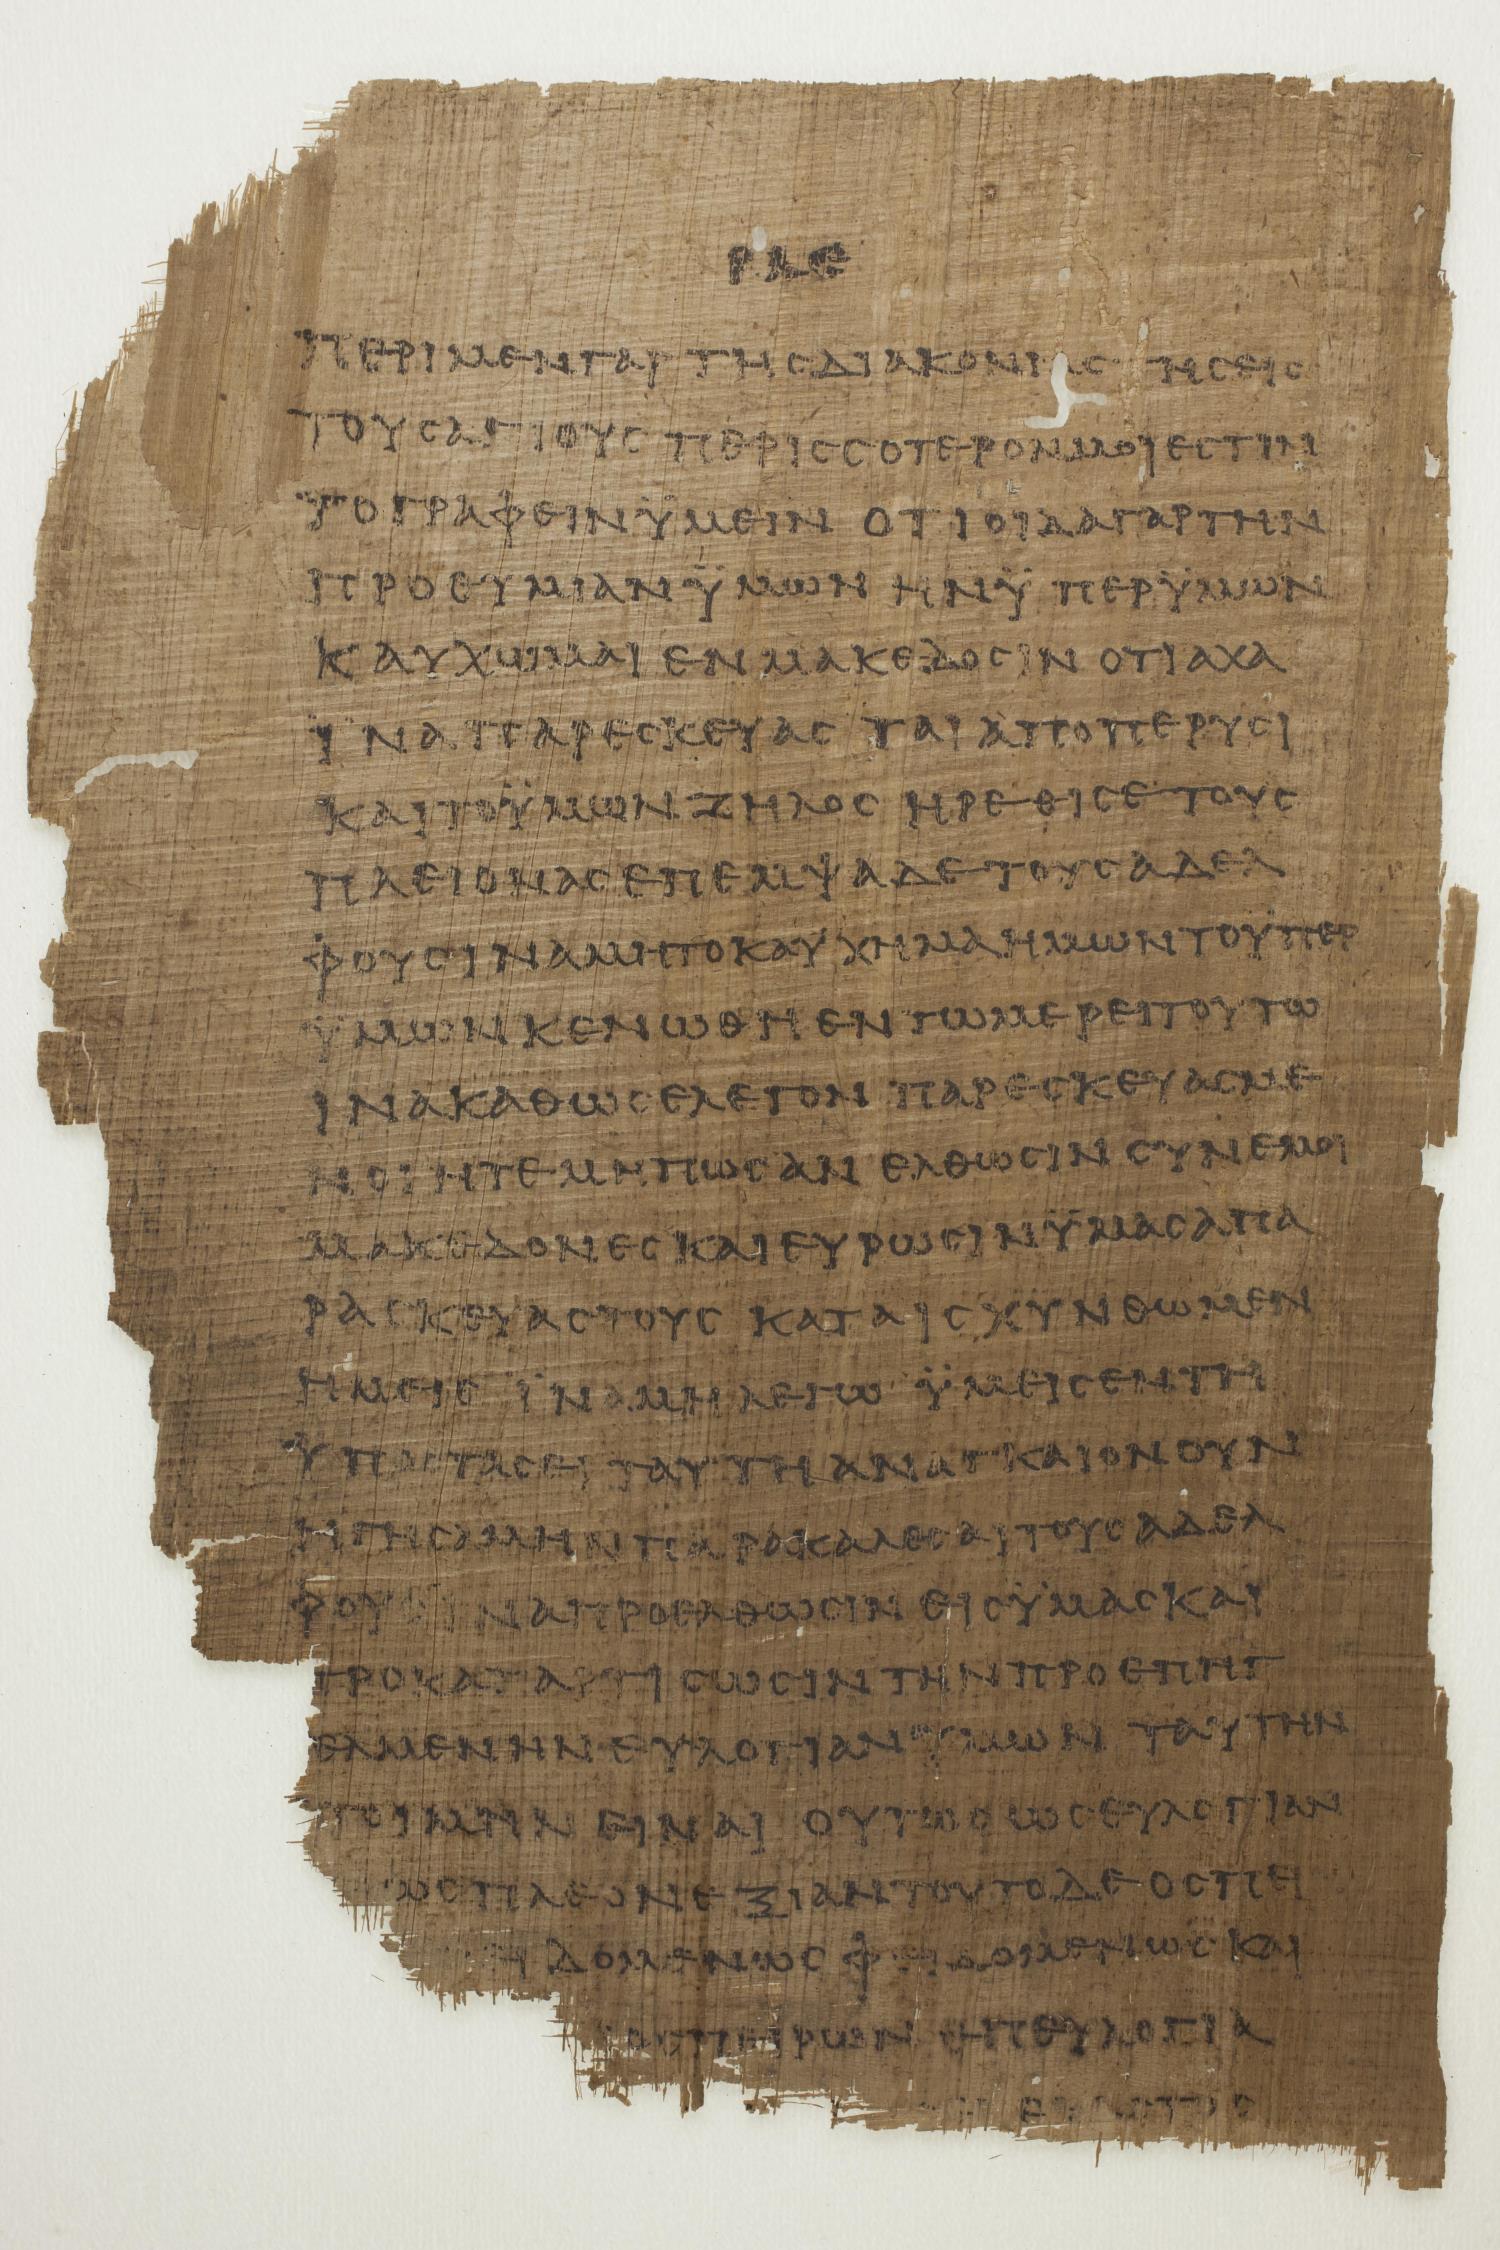 ΡΛΕ
ΠΕΡΙΜΕΝΓΑΡ ΤΗСΔΙΑΚΟΝΙΑС ΤΗСΕΙС
ΤΟΥСΑΓΙΟΥС ΠΕΡΙССΟΤΕΡΟΝΜΟΙΕСΤΙΝ
ΤΟΓΡΑΦΕΙΝΫΜΕΙΝ ΟΤΙΟΙΔΑΓΑΡΤΗΝ
ΠΡΟΘΥΜΙΑΝΫΜΩΝ ΗΝΫΠΕΡΫΜΩΝ
ΚΑΥΧΩΜΑΙ ΕΝΜΑΚΕΔΟСΙΝ ΟΤΙΑΧΑ
ΪΝΑΠΑΡΕСΚΕΥΑСΤΑΙ ΑΠΟΠΕΡΥСΙ
ΚΑΙΤΟΫΜΩΝ ΖΗΛΟС ΗΡΕΘΙСΕΤΟΥС
ΠΛΕΙΟΝΑС ΕΠΕΜΨΑΔΕΤΟΥСΑΔΕΛ
ΦΟΥСΙΝΑΜΗΤΟΚΑΥΧΗΜΑΗΜΩΝΤΟΫΠΕΡ
ΫΜΩΝΚΕΝΩΘΗ ΕΝΤΩΜΕΡΕΙΤΟΥΤΩ
ΙΝΑΚΑΘΩСΕΛΕΓΟΝ ΠΑΡΕСΚΕΥΑСΜΕ
ΝΟΙΗΤΕΜΗΠΩСΑΝ ΕΛΘΩСΙΝ СΥΝΕΜΟΙ
ΜΑΚΕΔΟΝΕСΚΑΙΕΥΡΩСΙΝΫΜΑСΑΠΑ
ΡΑСΚΕΥΑСΤΟΥС ΚΑΤΑΙСΧΥΝΘΩΜΕΝ
ΗΜΕΙС ΪΝΑΜΗΛΕΓΩ ΫΜΕΙСΕΝΤΗ
ΫΠΟСΤΑСΕΙ ΤΑΥΤΗ ΑΝΑΓΚΑΙΟΝΟΥΝ
ΗΓΗСΑΜΗΝΠΑΡΑΚΑΛΕСΑΙΤΟΥСΑΔΕΛ
ΦΟΥСΪΝΑΠΡΟΕΛΘΩСΙΝ ΕΙСΫΜΑСΚΑΙ
ΠΡΟΚΑΤΑΡΤΙСΩСΙΝΤΗΝΠΡΟΕΠΗΓ
ΕΛΜΕΝΗΝ ΕΥΛΟΓΙΑΝΫΜΩΝ ΤΑΥΤΗΝ
ΤΟΙΜΗΝ ΕΙΝΑΙ ΟΥΤΩС ΩСΕΥΛΟΓΙΑΝ
ΩСΠΛΕΟΝΕΞΙΑΝΤΟΥΤΟΔΕ ΟСΠΕΙ
ΙΔΟΜΕΝΩС ΦΕΙΔΟΜΕΝΩС ΚΑΙ
ΟСΠΕΙΡΩΝ ΕΠΕΥΛΟΓΙΑ